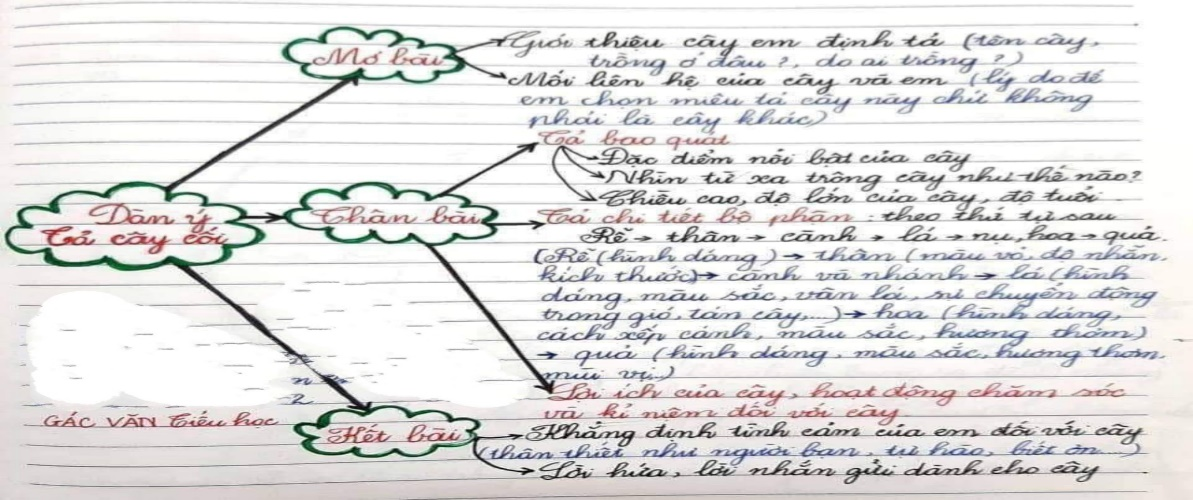 Mở bài
Giới thiệu cây em định tả (tên cây,
trồng ở đâu?, do ai trồng?)
Mối liên hệ của cây và em (lý do để
em chọn miêu tả cây này chứ không
phải là cây khác)
Dàn ý
Tả cây cối
Thân bài
Tả bao quát
Đặc điểm nổi bật của cây
Nhìn từ xa trông cây như thế nào?
Chiều cao, độ lớn của cây, độ tuổi
Tả chi tiết bộ phận: theo thứ tự sau
Rễ → thân → cành → lá → nụ, hoa → quả.
(Rễ (hình dáng) → thân (màu vỏ, độ nhẵn,
kích thước) → cành và nhánh → lá (hình
dáng, màu sắc, vân lá, sự chuyển động
trong gió, tán cây,...) → hoa (hình dáng,
cách xếp cánh, màu sắc, hương thơm)
→ quả (hình dáng, màu sắc, hương thơm,
mùi vị..)
Lợi ích của cây, hoạt động chăm sóc
và kỉ niệm đối với cây
GÁC VĂN Tiểu học
Kết bài
Khẳng định tình cảm của em đối với cây
(thân thiết như người bạn, tự hào, biết ơn....)
Lời hứa, lời nhắn gửi dành cho cây